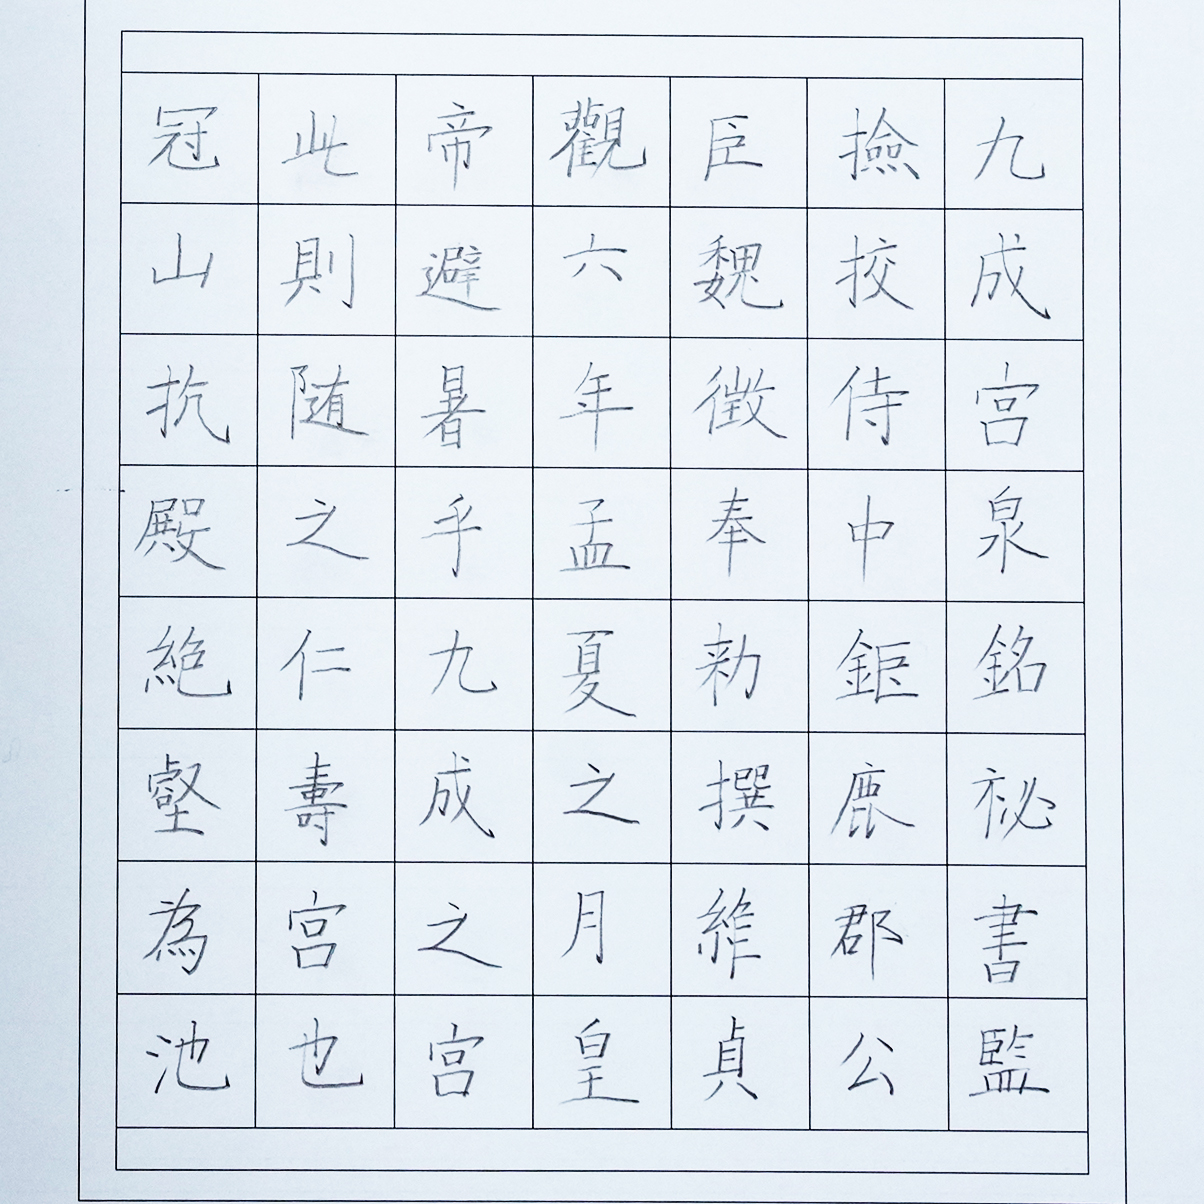 九成宫泉銘祕書監
撿挍侍中鉅鹿郡公
臣魏徵奉勑撰維貞
觀六年孟夏之月皇
帝避暑乎九成之宫
此則随之仁壽宫也
冠山抗殿絶壑為池